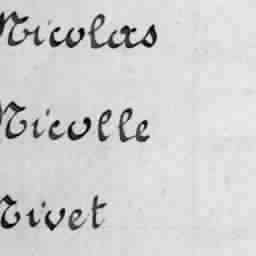 Nicolas
Nicolle
Nivet